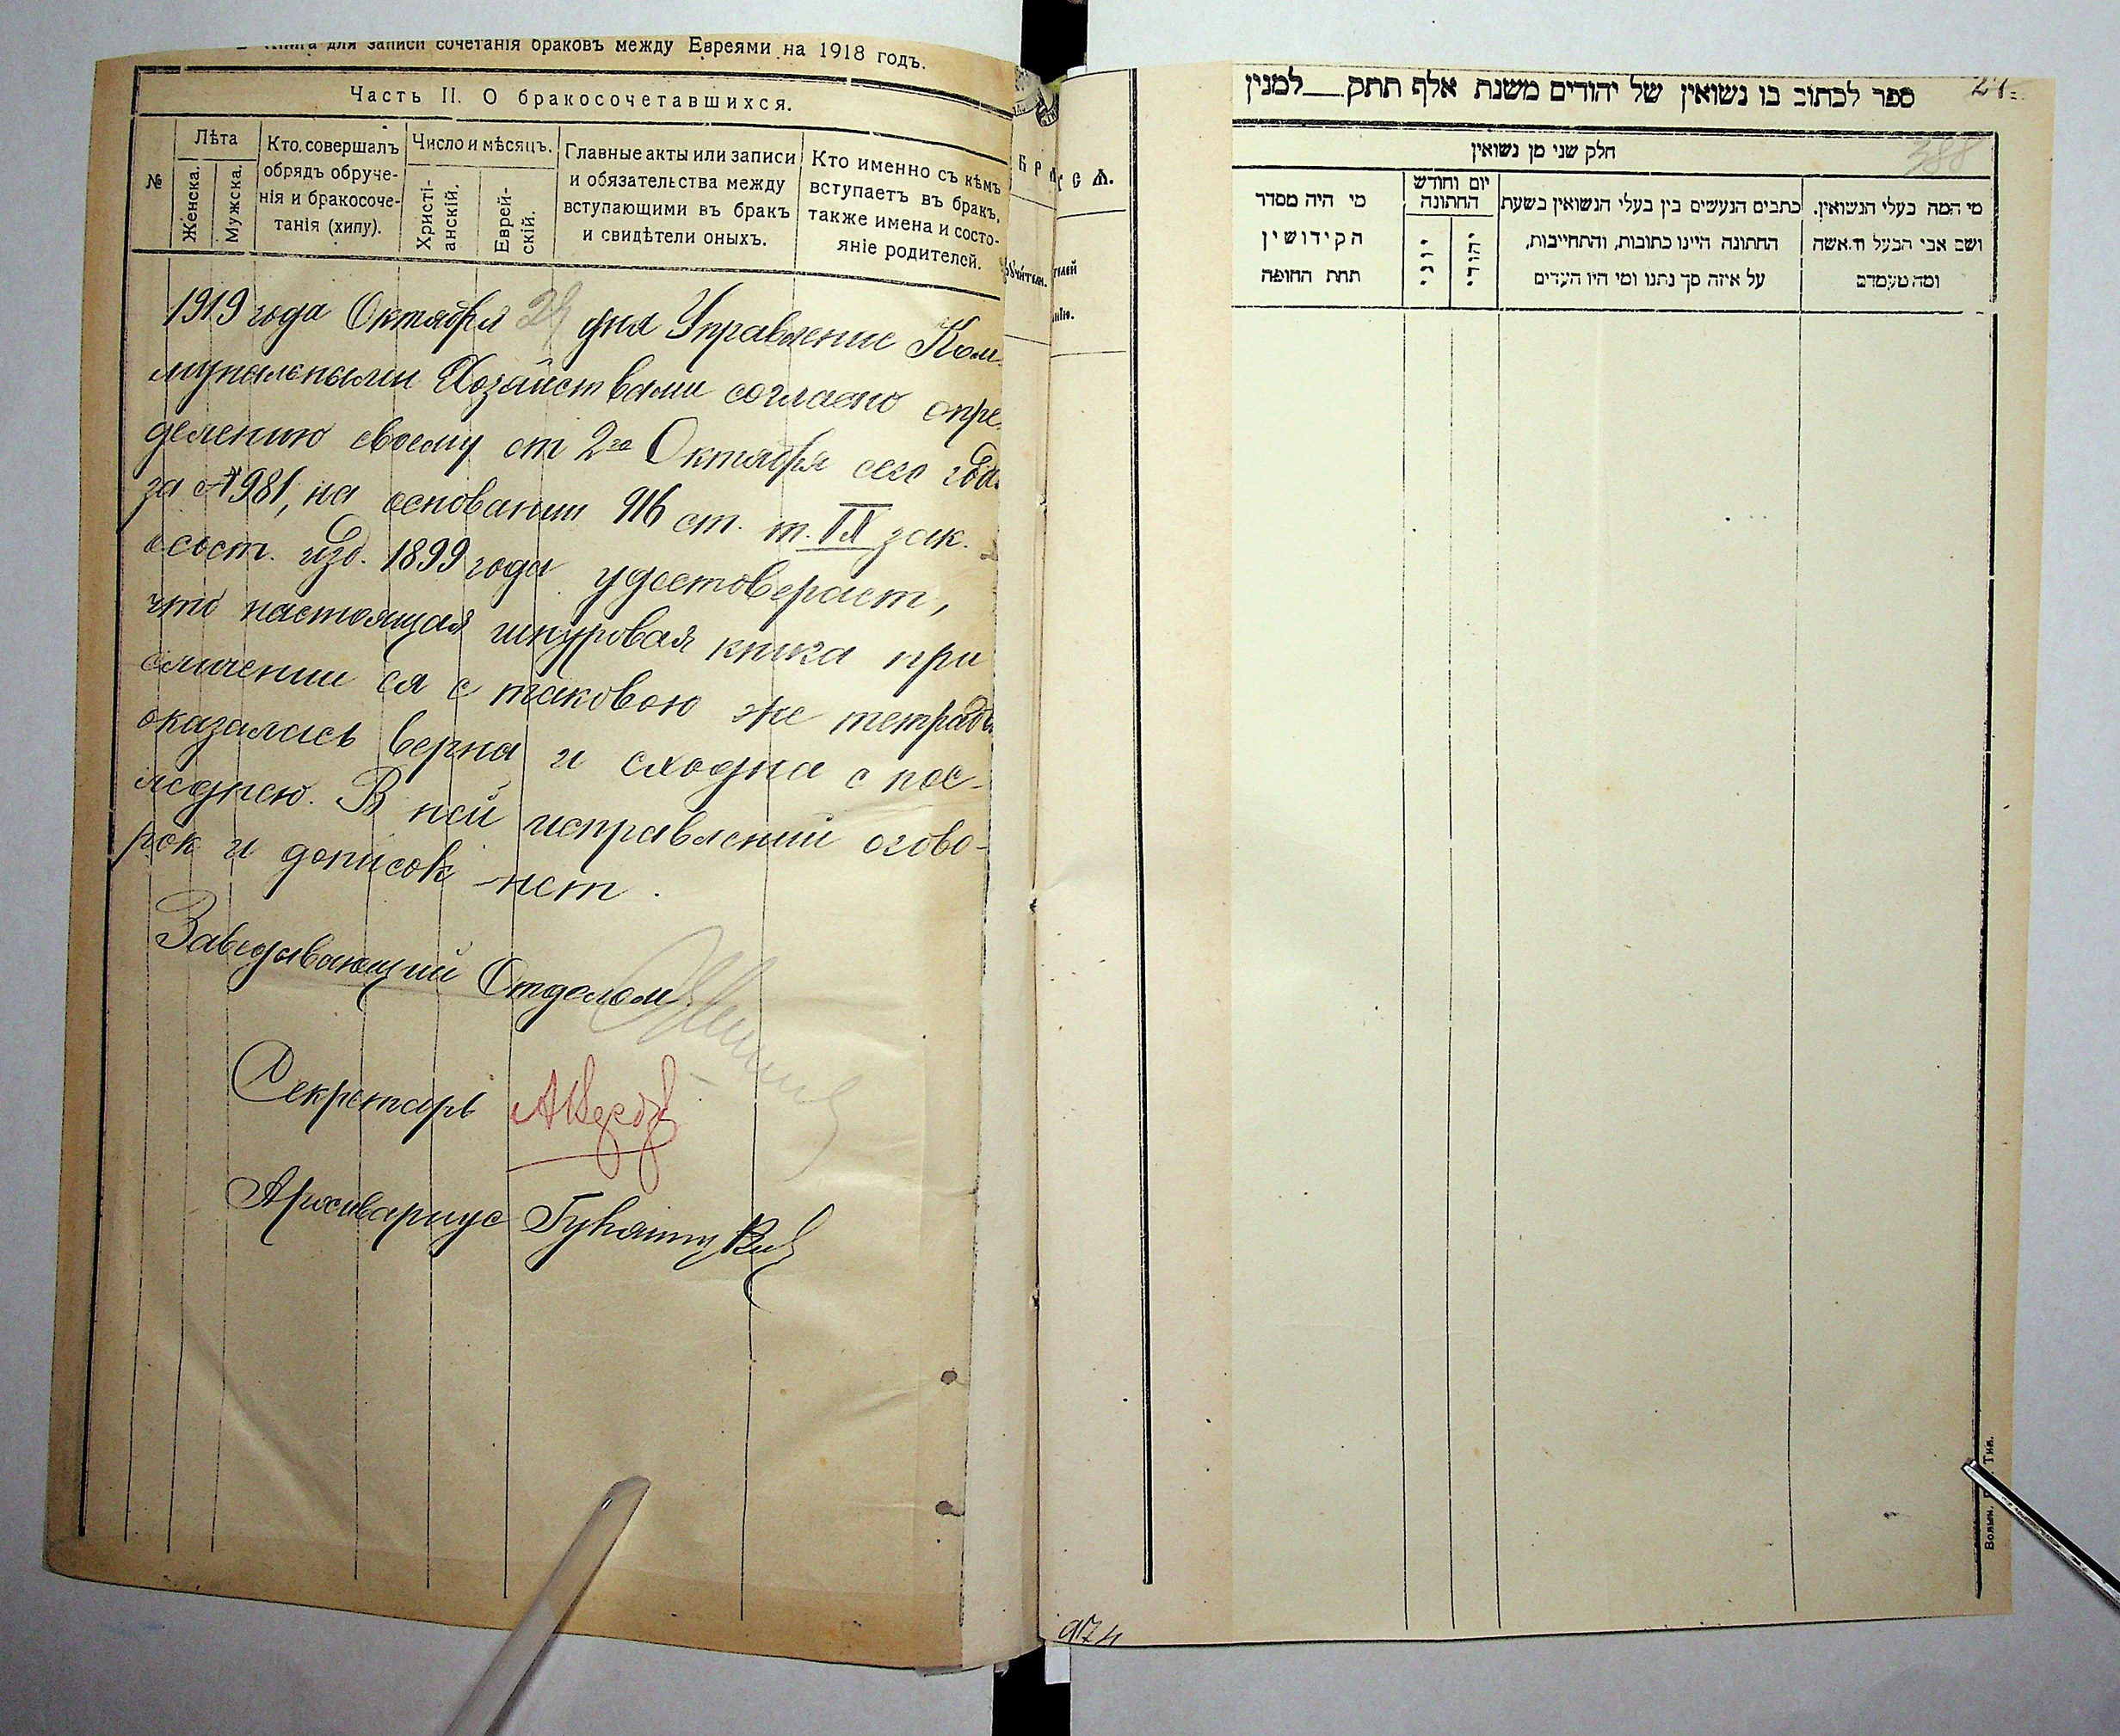 Книга для записи сочетанія браковъ между Евреями на 1918 годъ.
Часть II. О бракосочетавшихся.
№
Лѣта
Женска.
Мужска.
Кто совершалъ
обрядъ обруче-
нія и бракосоче-
танія (хипу).
Число и мѣсяцъ.
Христі-
анскій.
Еврей-
скій.
Главные акты или записи
и обязательства между
вступающими въ бракъ
и свидѣтели оныхъ.
Кто именно съ кѣмъ
вступаетъ въ бракъ,
также имена и состо-
яніе родителей.
1919 года Октября 29 дня Управление Ком-
мунальными Хозяйствами согласно опре-
делению своему от 2го Октября сего года
за № 981, на основании 916 ст. т. IX зак.
о сост. изд. 1899 года удостоверяет,
что настоящая шнуровая книга при
сличении ея с таковою же тетрадью
оказалась верна и сходна с пос-
леднею. В ней исправлений огово-
рок и дописок нет.
Заведывающий Отделом
Секретарь
Архивариус
ספר לכתוב בו נשואין של יהודים משנת אלף תתק__למנין
388
חלק שני מן נשואין
מי המה בעלי הנשואין.
ושם אבי הבעל והאשה
ומה מעמדם
כתבים הנעשים בין בעלי הנשואין בשעת
החתונה היינו כתובות, והתחייבות,
על איזה סך נתנו ומי היו העדים
יום וחודש
החתונה
יהודי
יוני
מי היה מסדר
הקידושין
תחת החופה
974